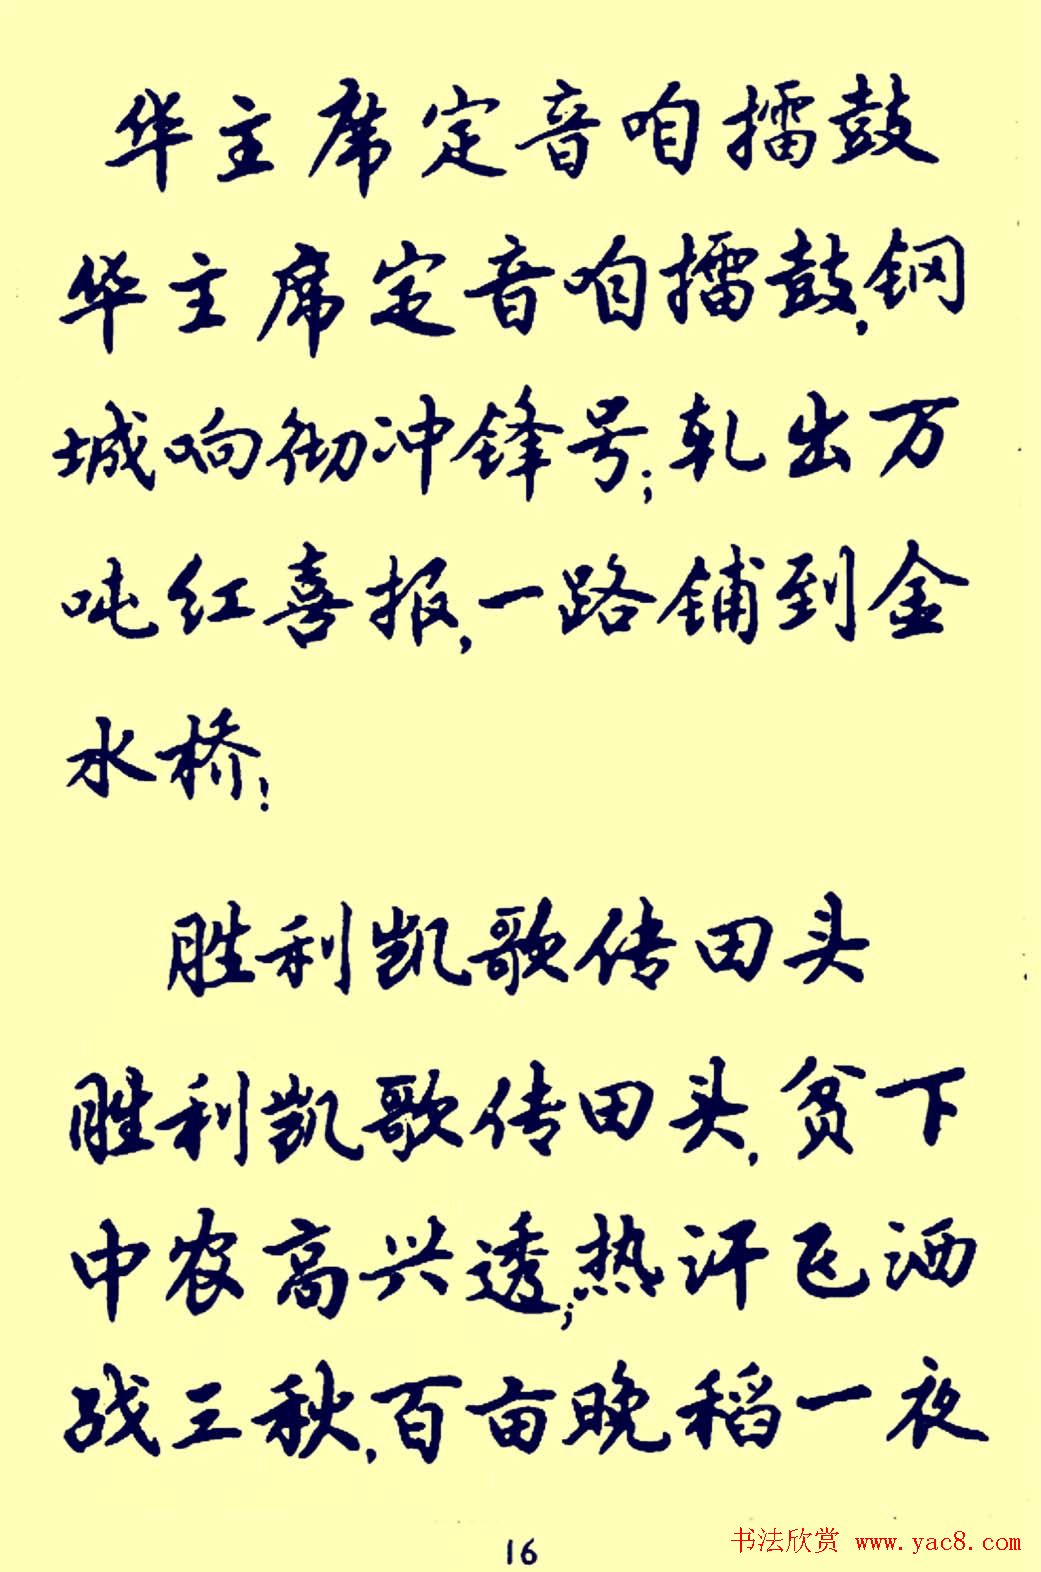 华主席定音咱擂鼓
华主席定音咱擂鼓,钢
城响彻冲锋号;轧出万
吨红喜报,一路铺到金
水桥!
胜利凯歌传田头
胜利凯歌传田头,贫下
中农高兴透;热汗飞洒
战三秋,百亩晚稻一夜
16
书法欣赏 www.yac8.com